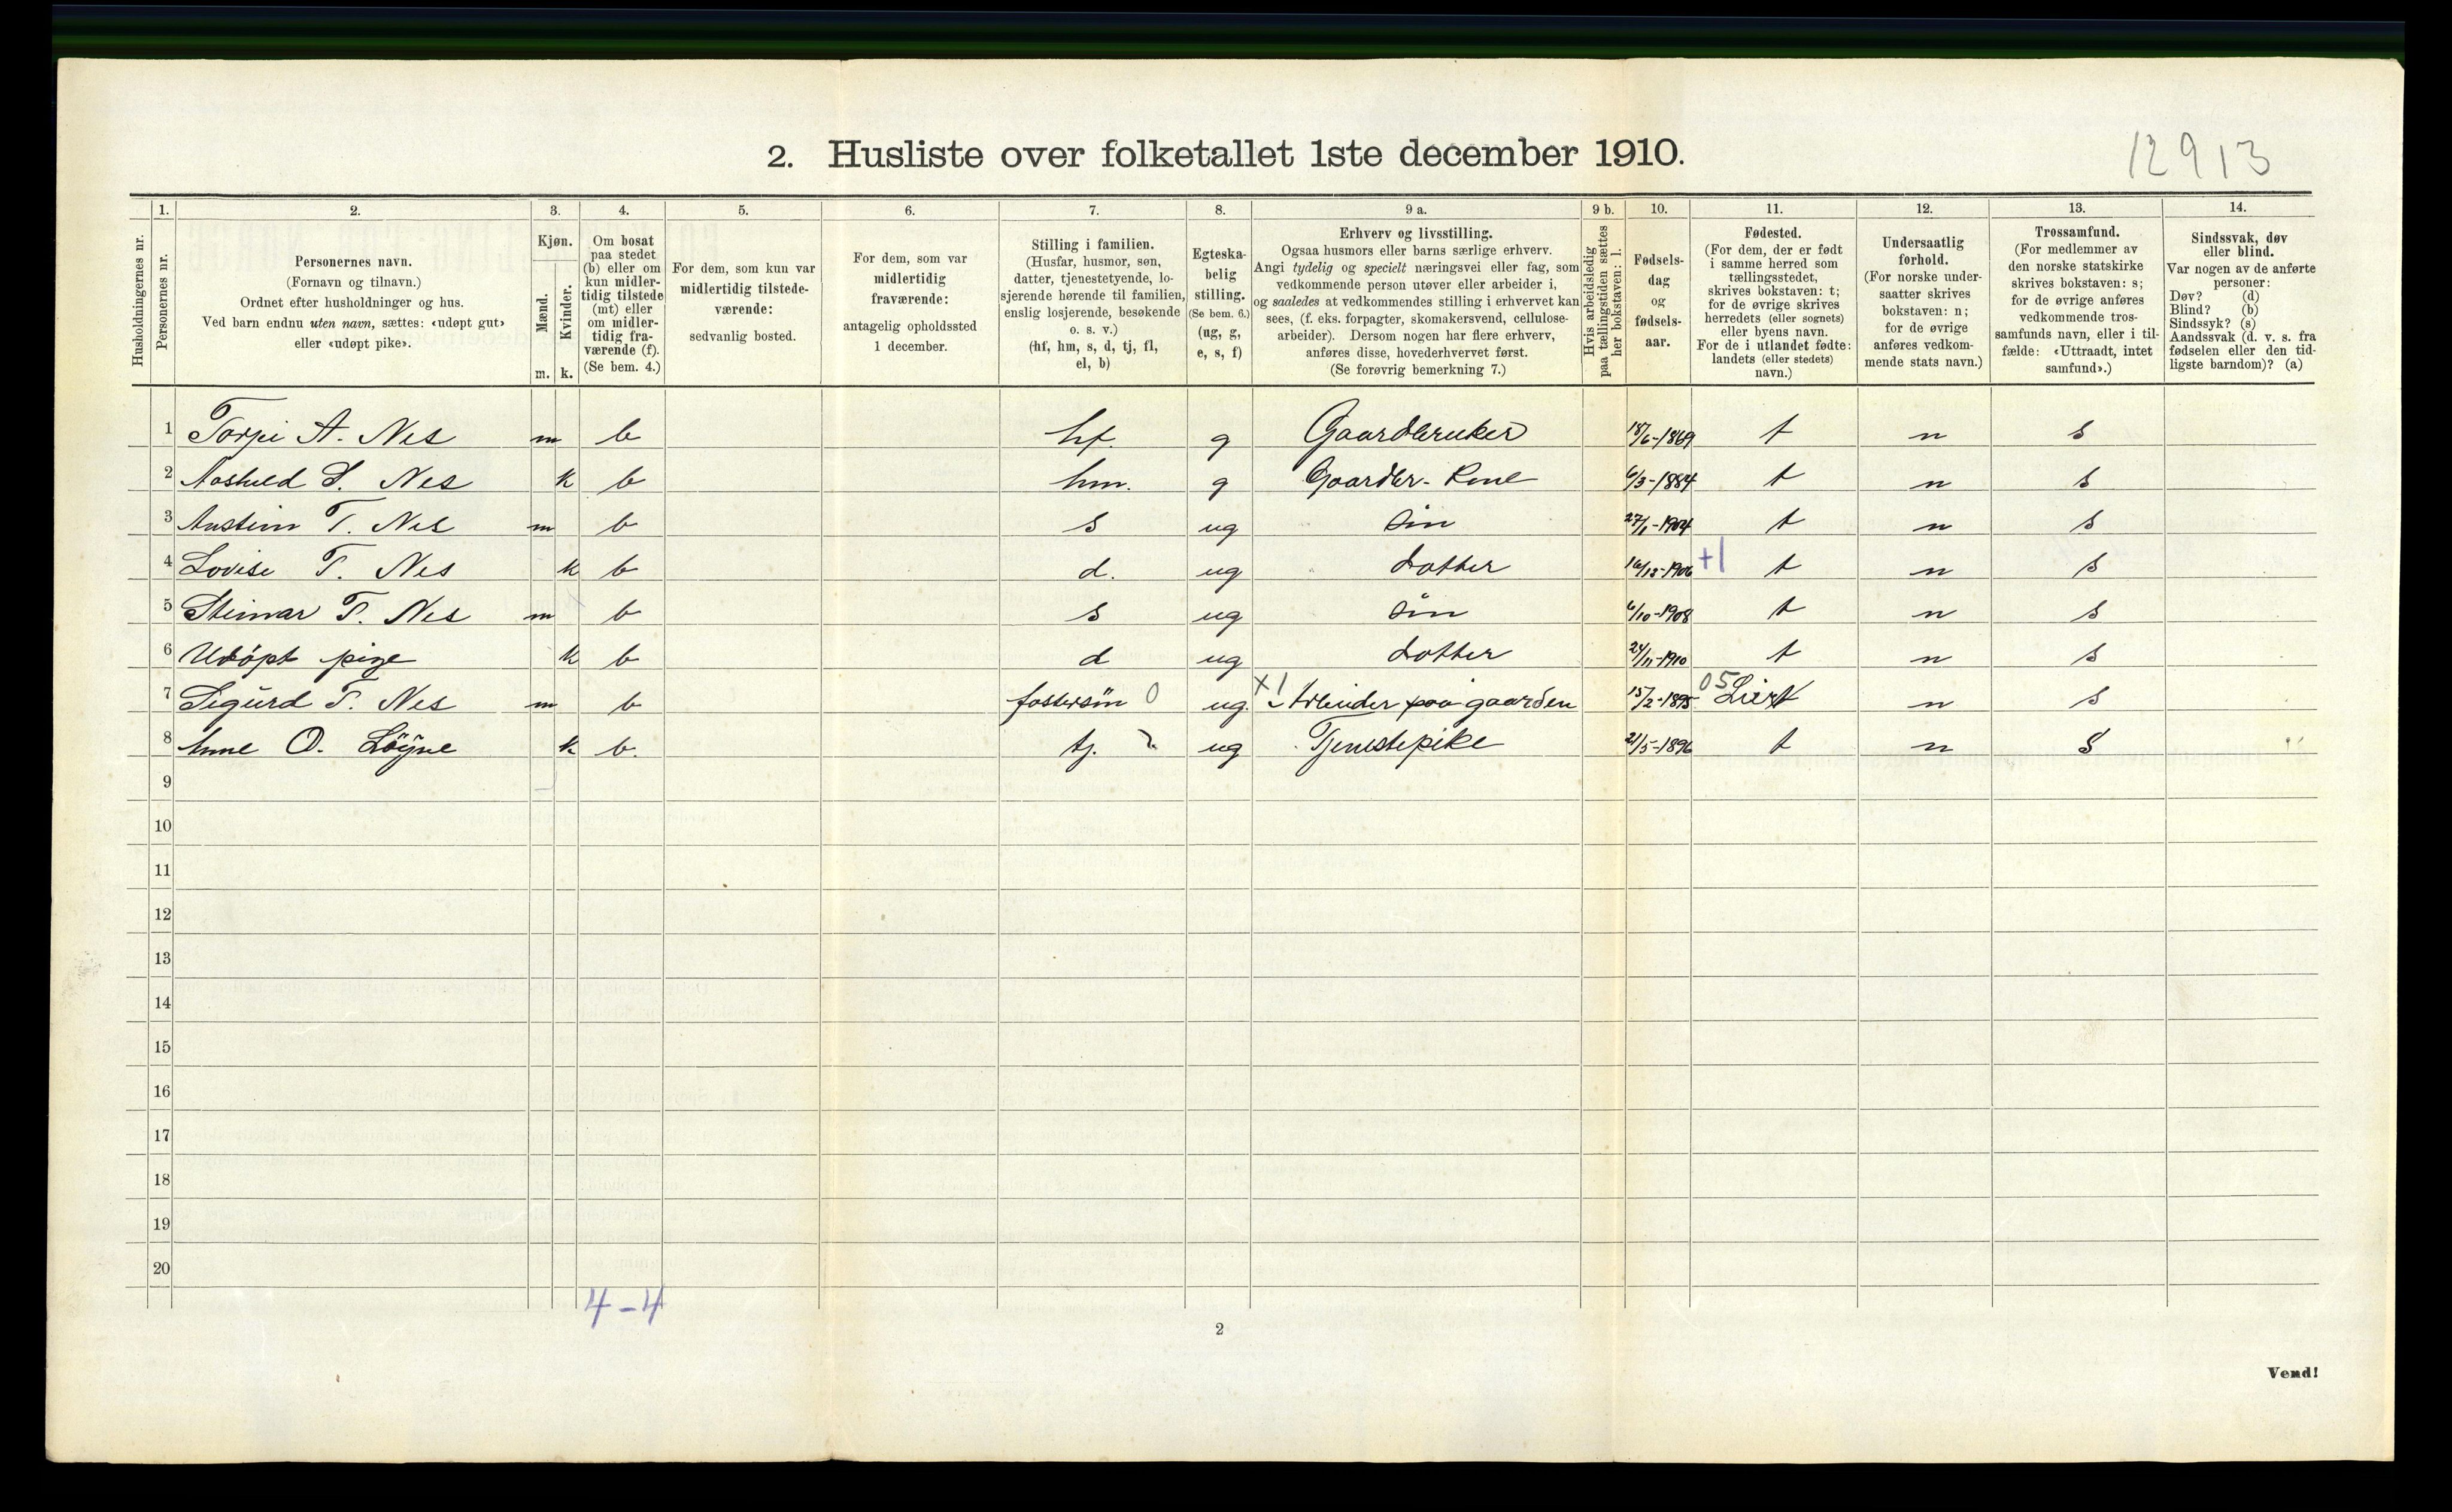 2. Husliste over folketallet 1ste december 1910.
12913
1. 2. 3. 4. 5. 6. 7. 8. 9 a. 9 b. 10. 11. 12. 13. 14.
Husholdningernes nr.
Personernes nr.
Personernes navn.
(Fornavn og tilnavn.)
Ordnet efter husholdninger og hus.
Ved barn endnu uten navn, sættes: «udøpt gut»
eller «udøpt pike».
Kjøn.
Mænd.
Kvinder.
m. k.
Om bosat
paa stedet
(b) eller om
kun midler-
tidig tilstede
(mt) eller
om midler-
tidig fra-
værende (f).
(Se bem. 4.)
For dem, som kun var
midlertidig tilstede-
værende:
sedvanlig bosted.
For dem, som var
midlertidig
fraværende:
antagelig opholdssted
1 december.
Stilling i familien.
(Husfar, husmor, søn,
datter, tjenestetyende, lo-
sjerende hørende til familien,
enslig losjerende, besøkende
o. s. v.)
(hf, hm, s, d, tj, fl,
el, b)
Egteska-
belig
stilling.
(Se bem. 6.)
(ug, g,
e, s, f)
Erhverv og livsstilling.
Ogsaa husmors eller barns særlige erhverv.
Angi tydelig og specielt næringsvei eller fag, som
vedkommende person utøver eller arbeider i,
og saaledes at vedkommendes stilling i erhvervet kan
sees, (f. eks. forpagter, skomakersvend, cellulose-
arbeider). Dersom nogen har flere erhverv,
anføres disse, hovederhvervet først.
(Se forøvrig bemerkning 7.)
Hvis arbeidsledig
paa tællingstiden sættes
her bokstaven: l.
Fødsels-
dag
og
fødsels-
aar.
Fødested.
(For dem, der er født
i samme herred som
tællingsstedet,
skrives bokstaven: t;
for de øvrige skrives
herredets (eller sognets)
eller byens navn.
For de i utlandet fødte:
landets (eller stedets)
navn.)
Undersaatlig
forhold.
(For norske under-
saatter skrives
bokstaven: n;
for de øvrige
anføres vedkom-
mende stats navn.)
Trossamfund.
(For medlemmer av
den norske statskirke
skrives bokstaven: s;
for de øvrige anføres
vedkommende tros-
samfunds navn, eller i til-
fælde: «Uttraadt, intet
samfund».)
Sindssvak, døv
eller blind.
Var nogen av de anførte
personer:
Døv? (d)
Blind? (b)
Sindssyk? (s)
Aandssvak (d. v. s. fra
fødselen eller den tid-
ligste barndom)? (a)
1 A. Nes m b hf. g Gaardbruker 18/6-1869 t n s
2 S. Nes k b hm. g Gaardbr- Kone 6/3-1884 t n s
3 T. Nes m b s ug sön 27/1-1904 t n s
4 Lovise T. Nes k b d. ug dotter 16/12-1906 +1 t n s
5 Steinar T. Nes m b s ug sön 6/10-1908 t n s
6 Udöpt pige k b d ug dotter 24/11-1910 t n s
7 Sigurd T. Nes m b fostersön 0 ug. x1 Arbeider paa gaarden 15/2-1895 05 n s
8 Anne O. Löyne k b. tj. ug Tjenestepike 21/5-1896 t n s
9
10
11
12
13
14
15
16
17
18
19
20
4-4
2
Vend!